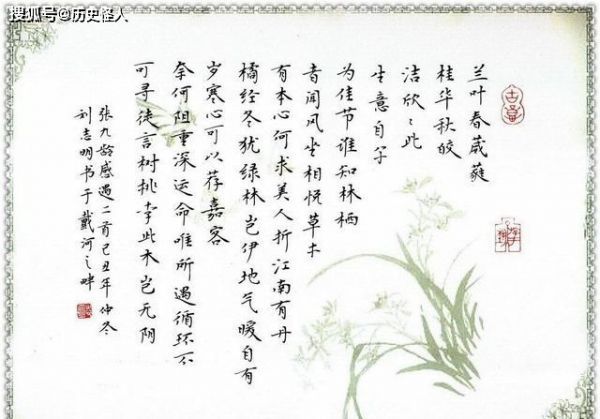 搜狐号@历史怪人
兰叶春葳蕤
桂华秋皎
洁欣〻此
生意自尔
为佳节谁知林栖
者闻风坐相悦草木
有本心何求美人折江南有丹
橘经冬犹绿林岂伊地气暖自有
岁寒心可以荐嘉客
奈何阻重深运命唯所遇循环不
可寻徒言树桃李此木岂无阴
张九龄感遇二首己丑年仲冬
刘志明书于戴河之畔